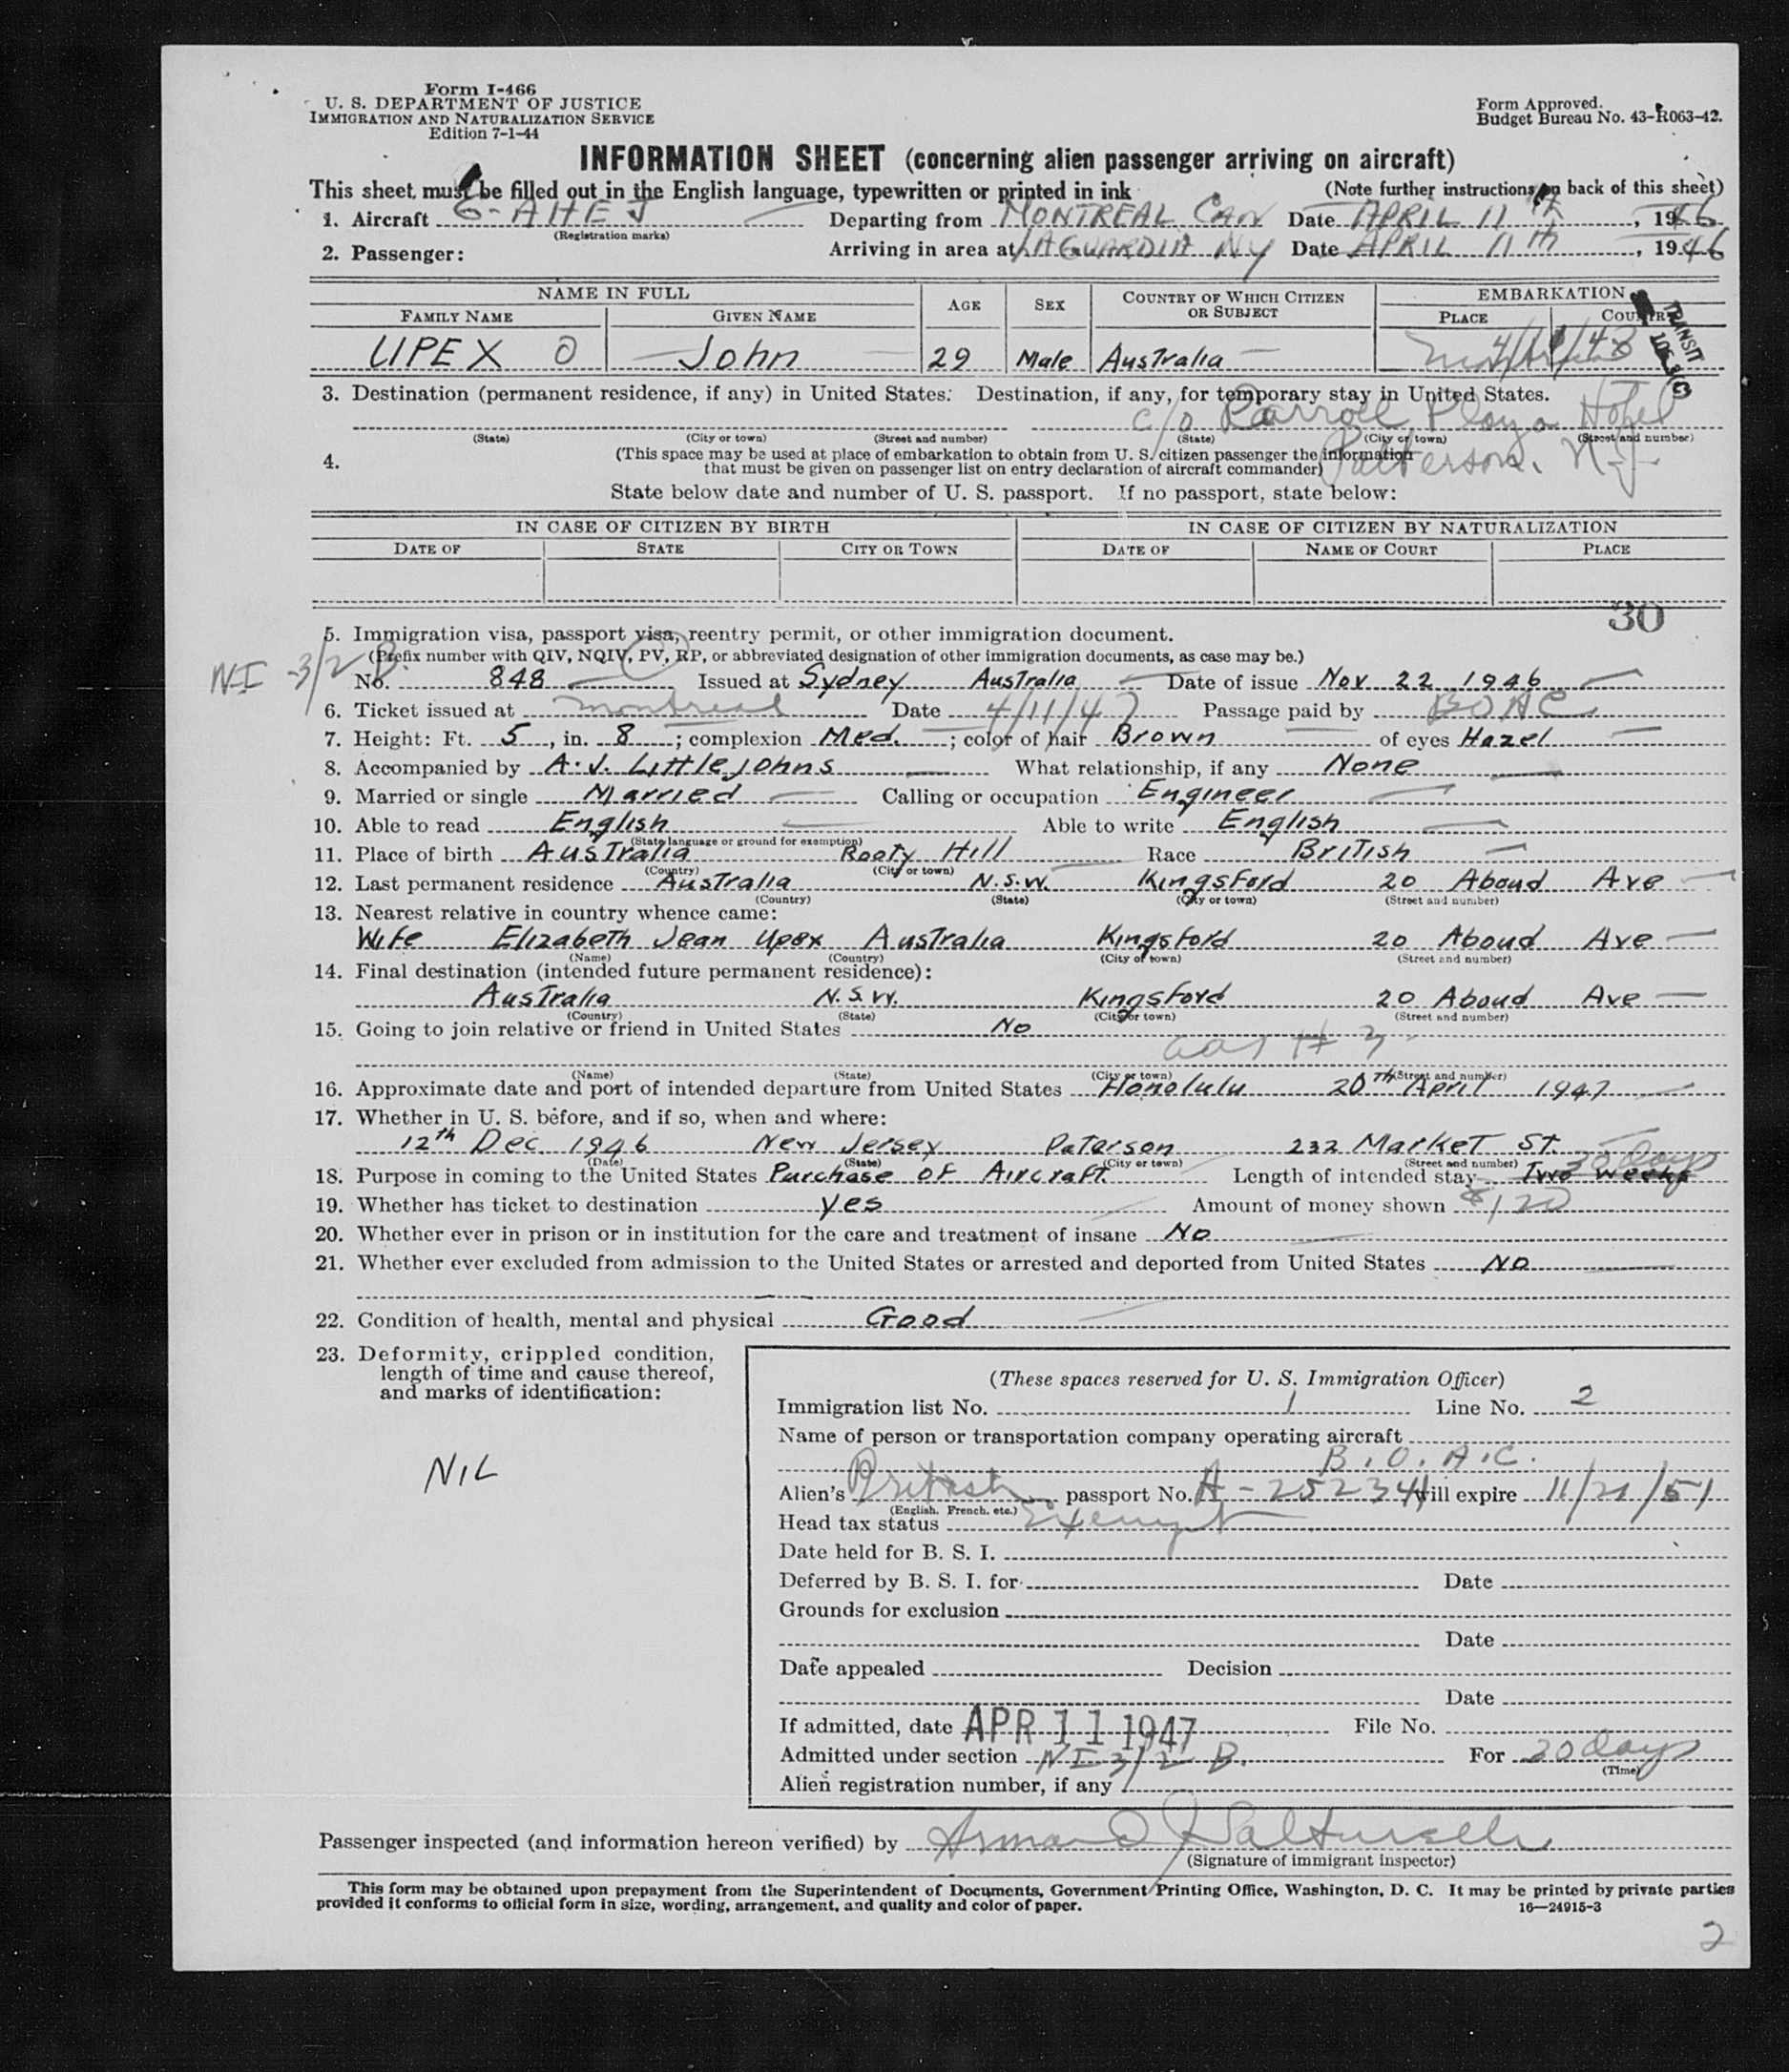 Form I-466
U. S. DEPARTMENT OF JUSTICE
IMMIGRATION AND NATURALIZATION SERVICE
Edition 7-1-44
Form Approved.
Budget Bureau No. 43-R063-42.
INFORMATION SHEET (concerning alien passenger arriving on aircraft)
This sheet must be filled out in the English language, typewritten or printed in ink (Note further instructions on back of this sheet)
1. Aircraft G-AHEJ Departing from MONTREAL CAN Date APRIL 11th, 1946
(Registration marks)
2. Passenger: Arriving in area at LAGUARDIA NY Date APRIL 11th, 1946
NAME IN FULL AGE SEX COUNTRY OF WHICH CITIZEN OR SUBJECT EMBARKATION
FAMILY NAME GIVEN NAME PLACE COUNTRY
TRANSIT
UPEX 0 John 29 Male Australia
3. Destination (permanent residence, if any) in United States: Destination, if any, for temporary stay in United States.
c/o Hotel
(State) (City or town) (Street and number) (State) (City or town) (Street and number)
Patterson, N.J.
4. (This space may be used at place of embarkation to obtain from U. S. citizen passenger the information
that must be given on passenger list on entry declaration of aircraft commander)
State below date and number of U. S. passport. If no passport, state below:
IN CASE OF CITIZEN BY BIRTH IN CASE OF CITIZEN BY NATURALIZATION
DATE OF STATE CITY OR TOWN DATE OF NAME OF COURT PLACE
30
5. Immigration visa, passport visa, reentry permit, or other immigration document.
(Prefix number with QIV, NQIV, PV, RP, or abbreviated designation of other immigration documents, as case may be.)
NI-3/2 B
No. 848 Issued at Sydney Australia Date of issue Nov 22 1946
6. Ticket issued at Montreal Date 4/11/47 Passage paid by BOAC
7. Height: Ft. 5, in. 8; complexion Med.; color of hair Brown of eyes Hazel
8. Accompanied by A. J. Littlejohns What relationship, if any None
9. Married or single Married Calling or occupation Engineer
10. Able to read English Able to write English
(State language or ground for exemption)
11. Place of birth Australia Rooty Hill Race British
(Country) (City or town)
12. Last permanent residence Australia N.S.W. Kingsford 20 Aboud Ave
(Country) (State) (City or town) (Street and number)
13. Nearest relative in country whence came:
Wife Elizabeth Jean Upex Australia Kingsford 20 Aboud Ave
(Name) (Country) (City or town) (Street and number)
14. Final destination (intended future permanent residence):
Australia N.S.W. Kingsford 20 Aboud Ave
(Country) (State) (City or town) (Street and number)
15. Going to join relative or friend in United States No
(Name) (State) (City or town) (Street and number)
16. Approximate date and port of intended departure from United States Honolulu 20th April 1947
17. Whether in U. S. before, and if so, when and where:
12th Dec 1946 New Jersey Paterson 232 Market St.
(Date) (State) (City or town) (Street and number)
18. Purpose in coming to the United States Purchase of Aircraft Length of intended stay Two weeks 30 days
19. Whether has ticket to destination yes Amount of money shown $120
20. Whether ever in prison or in institution for the care and treatment of insane No
21. Whether ever excluded from admission to the United States or arrested and deported from United States No
22. Condition of health, mental and physical Good
23. Deformity, crippled condition,
length of time and cause thereof,
and marks of identification:
NIL
(These spaces reserved for U. S. Immigration Officer)
Immigration list No. 1 Line No. 2
Name of person or transportation company operating aircraft
B.O.A.C.
Alien's British passport No. A-252344 will expire 11/21/51
(English, French, etc.)
Head tax status Exempt
Date held for B. S. I.
Deferred by B. S. I. for Date
Grounds for exclusion
Date
Date appealed Decision
Date
If admitted, date APR 11 1947 File No.
Admitted under section NI 3/2 B. For 30 days
(Time)
Alien registration number, if any
Passenger inspected (and information hereon verified) by
(Signature of immigrant inspector)
This form may be obtained upon prepayment from the Superintendent of Documents, Government Printing Office, Washington, D. C. It may be printed by private parties
provided it conforms to official form in size, wording, arrangement, and quality and color of paper. 16—24915-3
2